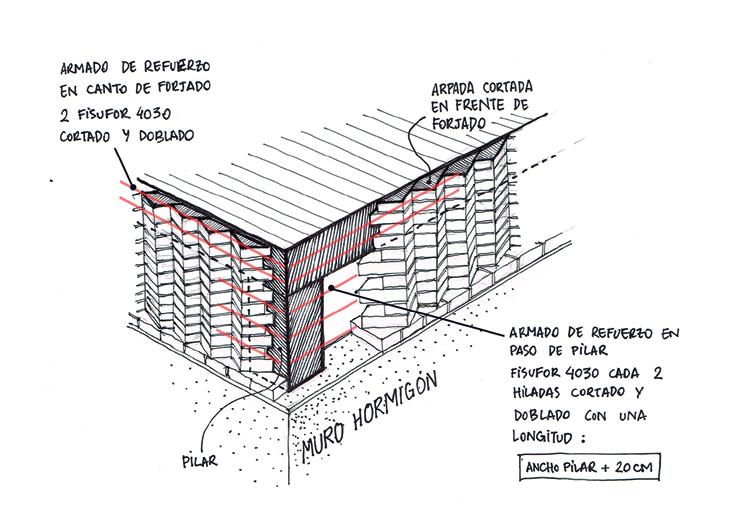 ARMADO DE REFUERZO
EN CANTO DE FORJADO
2 FISUFOR 4030
CORTADO Y DOBLADO
ARPADA CORTADA
EN FRENTE DE
FORJADO
ARMADO DE REFUERZO EN
PASO DE PILAR
FISUFOR 4030 CADA 2
HILADAS CORTADO Y
DOBLADO CON UNA
LONGITUD :
ANCHO PILAR + 20 CM
MURO HORMIGÓN
PILAR